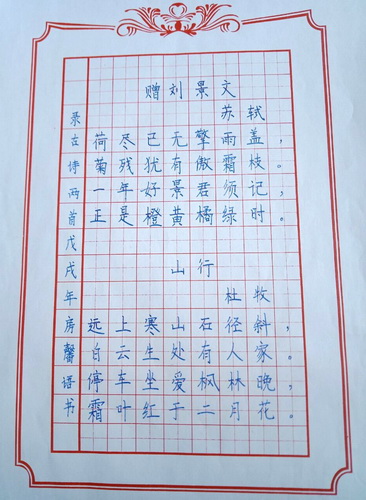 赠刘景文
苏轼
荷尽已无擎雨盖，
菊残犹有傲霜枝。
一年好景君须记，
正是橙黄橘绿时。
山行
杜牧
远上寒山石径斜，
白云生处有人家。
停车坐爱枫林晚，
霜叶红于二月花。
录古诗两首戊戌年房馨语书